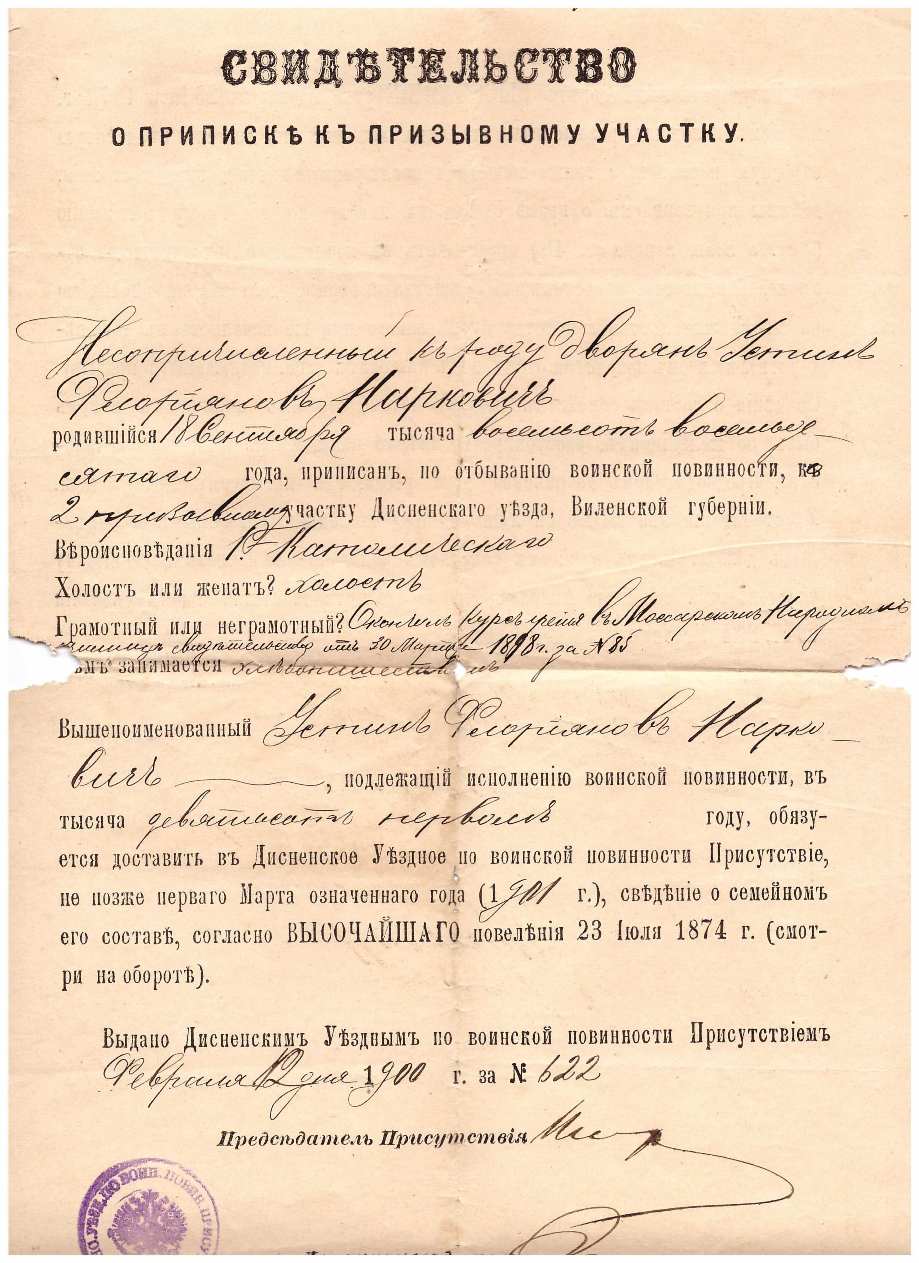 СВИДѢТЕЛЬСТВО
О ПРИПИСКѢ КЪ ПРИЗЫВНОМУ УЧАСТКУ.
Несопричисленный къ роду дворянъ Устинъ
Флоріяновъ Нарковичъ
родившійся 18 Сентября тысяча восемьсотъ восемьде-
сятаго года, приписанъ, по отбыванію воинской повинности, къ
2 призывному участку Дисненскаго уѣзда, Виленской губерніи.
Вѣроисповѣданія Р. Католическаго
Холостъ или женатъ? холостъ
Грамотный или неграмотный? Окончилъ курсъ въ Моссарскомъ Народномъ
свидѣтельство отъ 30 Марта 1898 г. за № 85
ѣмъ занимается хлѣбопашествомъ
Вышепоименованный Устинъ Флоріяновъ Нарко-
вичъ, подлежащій исполненію воинской повинности, въ
тысяча девятьсотъ первомъ году, обязу-
ется доставить въ Дисненское Уѣздное по воинской повинности Присутствіе,
не позже перваго Марта означеннаго года (1901 г.), свѣдѣніе о семейномъ
его составѣ, согласно ВЫСОЧАЙШАГО повелѣнія 23 Іюля 1874 г. (смот-
ри на оборотѣ).
Выдано Дисненскимъ Уѣзднымъ по воинской повинности Присутствіемъ
Февраля 12 дня 1900 г. за № 622
Предсѣдатель Присутствія
УѢЗД. ПО ВОИН. ПОВИН. ПРИСУ